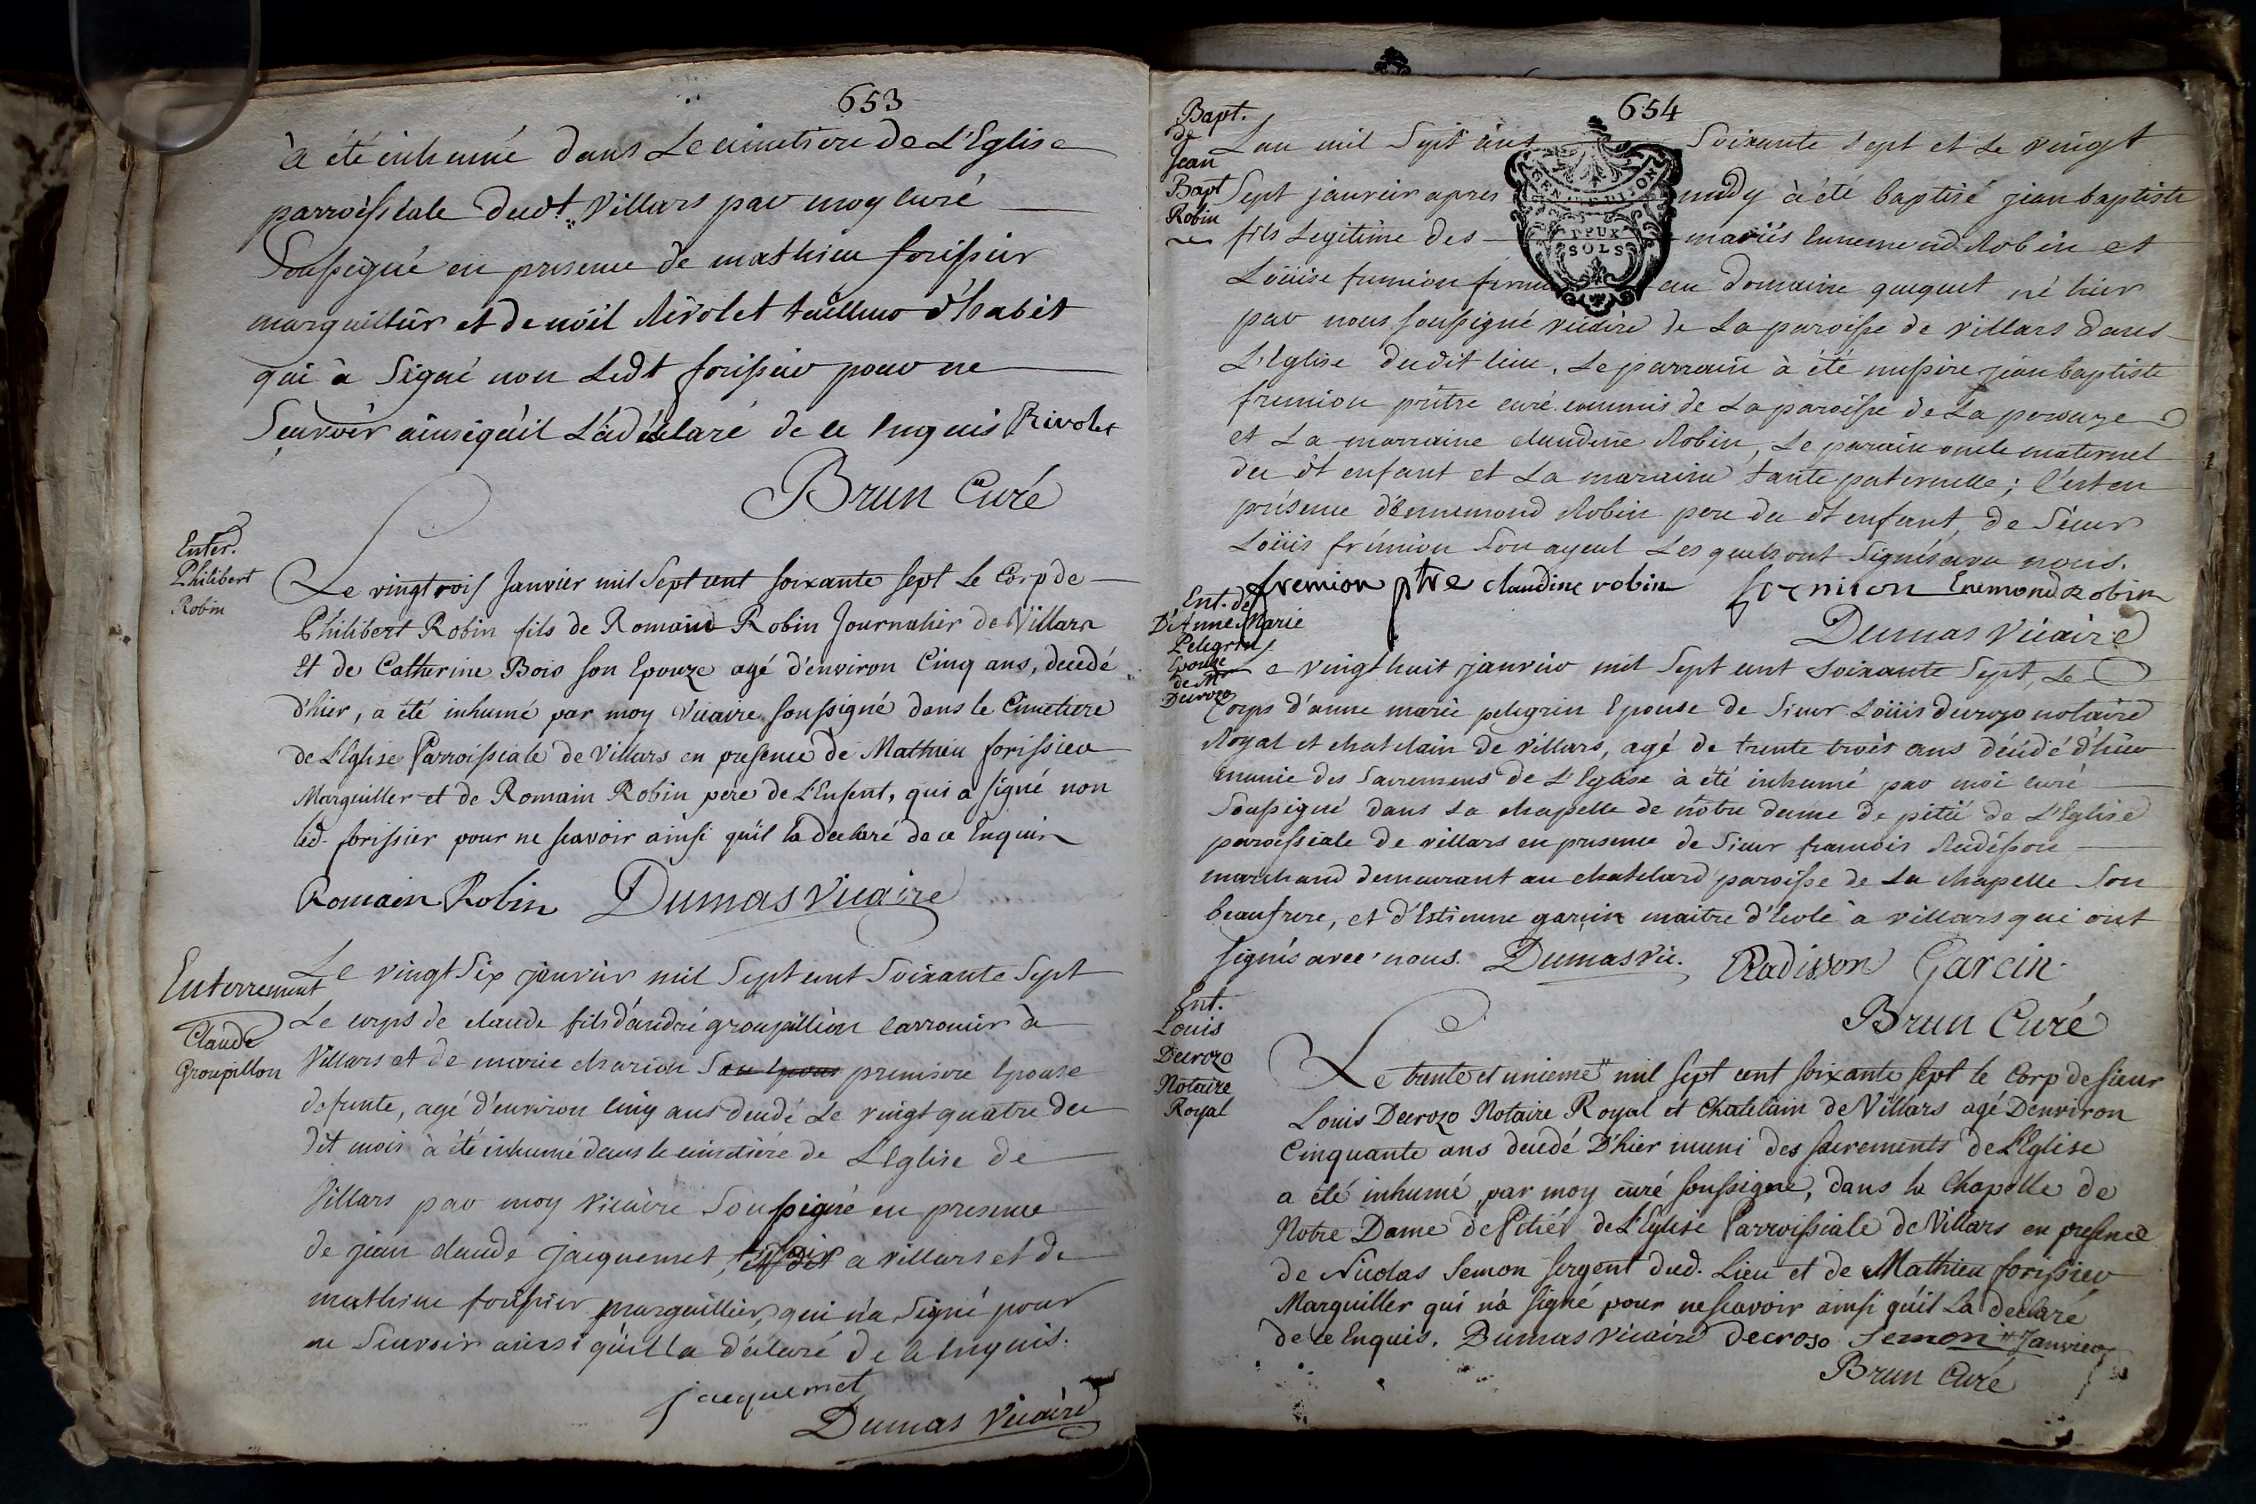 653
à été inhumé dans Le cimetiere de L'Eglise
parroissiale dudt Villars par moy curé
soussigné en presence de mathieu forissier
marguillier et de nöel Rivolet tailleur d'habit
qui à signé non Ledt forissier pour ne
sçavoir ainsiquil L'a déclaré de ce Enquis Rivolet
Brun Curé
Enter.
Philibert
Robin
Le vingtrois Janvier mil sept cent soixante sept Le Corp de
Philibert Robin fils de Romain Robin Journalier de Villars
et de Catherine Bois son Epouze agé d'environ Cinq ans, decedé
d'hier, a été inhumé par moy Vicaire soussigné dans le Cimetiere
de L'Eglise Parroissiale de Villars en presence de Mathieu forissier
Marguiller et de Romain Robin pere de L'Enfent, qui a signé non
led. forissier pour ne scavoir ainsi qu'il la declaré de ce Enquis
Romain Robin Dumas Vicaire
Enterrement
Claude
Groupillon
Le vingt six janvier mil sept cent soixante sept
Le corps de claude fils d'andré groupillion à
Villars et de marie charion son epouse premiere epouse
defunte, agé d'environ cinq ans decedé Le vingt quatre du
dit mois à été inhumé dans le cimetiére de L'Eglise de
Villars par moy vicaire soussigné en presence
de jean claude jacquemet, à villars et de
mathieu forissier marguillier, qui n'a signé pour
ne scavoir ainsi qu'il L'a déclaré de ce enquis.
jacquemet
Dumas Vicaire
654
Bapt.
de
Jean
Bapt
Robin
GEN DIJON
DEUX
SOLS
Lan mil sept cens soixante sept et Le vingt
sept janvier apres midy à été baptisé jean baptiste
fils Legitime des mariés Ennemond Robin et
Loüise fremion au domaine né hier
par nous soussigné vicaire de La paroisse de villars dans
L'Eglise dudit lieu. Le parrain à été messire jean baptiste
fremion prêtre curé commis de La paroisse de La perouze
et La marraine claudine Robin, Le parain oncle maternel
du dt enfant et La maraine tante paternelle; c'est en
présence d'Ennemond Robin pere du dt enfant, de Sieur
Loüis frémion son ayeul Lesquels ont signés avec nous.
fremion ptre claudine robin fremion Enemond Robin
Dumas Vicaire
Ent. de
D'Anne Marie
Pelegrin
Epouse
de Mr
Decrozo
Le vingt huit janvier mil sept cent soixante sept, Le
Corps d'anne marie pelegrin Epouse de Sieur Loüis decrozo notaire
Royal et chatelain de villars, agé de trente trois ans décédé d'hier
munie des sacremens de L'Eglise à été inhumé par moi curé
soussigné dans La chapelle de nôtre dame de pitié de L'Eglise
paroissiale de villars en presence de Sieur francois Radisson
marchand demeurant au chatelard paroisse de La chapelle son
beaufrere, et d'Estienne garcin maitre d'Ecole à villars qui ont
signés avec nous. Dumas vic. Radisson Garcin.
Brun Curé
Ent.
Louis
Decrozo
Notaire
Royal
Le trente et unieme # mil sept cent soixante sept le Corp de sieur
Louis Decrozo Notaire Royal et Chatelain de Villars agé Denviron
Cinquante ans decedé D'hier muni des sacrements de L'Eglise
a été inhumé par moy curé soussigné, dans la Chapelle de
Notre Dame de Pitiér de L'Eglise Parroissiale de Villars en presence
de Nicolas Semon sergent dud. Lieu et de Mathieu forissier
Marguiller qui n'a signé pour ne scavoir ainsi qu'il La declaré
de ce Enquis. Dumas Vicaire Decrozo Semon # Janvier
Brun Curé